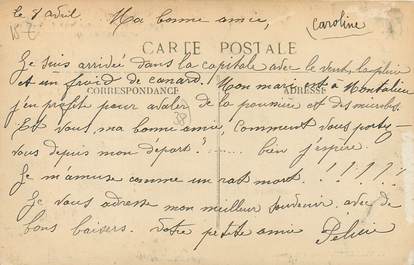 le 8 avril
Ma bonne amie,
Caroline
CARTE POSTALE
Je suis arrivée dans la capitale avec le vent, la pluie
et un froid de canard. Mon mari est à Montalieu
CORRESPONDANCE
ADRESSE
j'en profite pour avaler de la poussière et des microbes.
Et vous ma bonne amie, comment vous portez-
vous depuis mon départ? ..... bien j'espère.
Je m'amuse comme un rat mort. ! ! ! ! ! !
Je vous adresse mon meilleur souvenir avec de
bons baisers. Votre petite amie